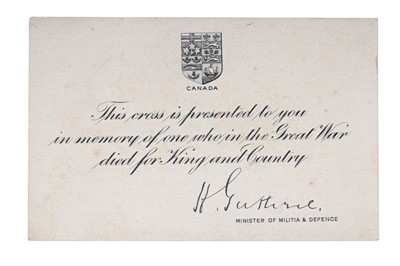 CANADA
This cross is presented to you
in memory of one who in the Great War
died for King and Country
H. Guthrie.
MINISTER OF MILITIA & DEFENCE